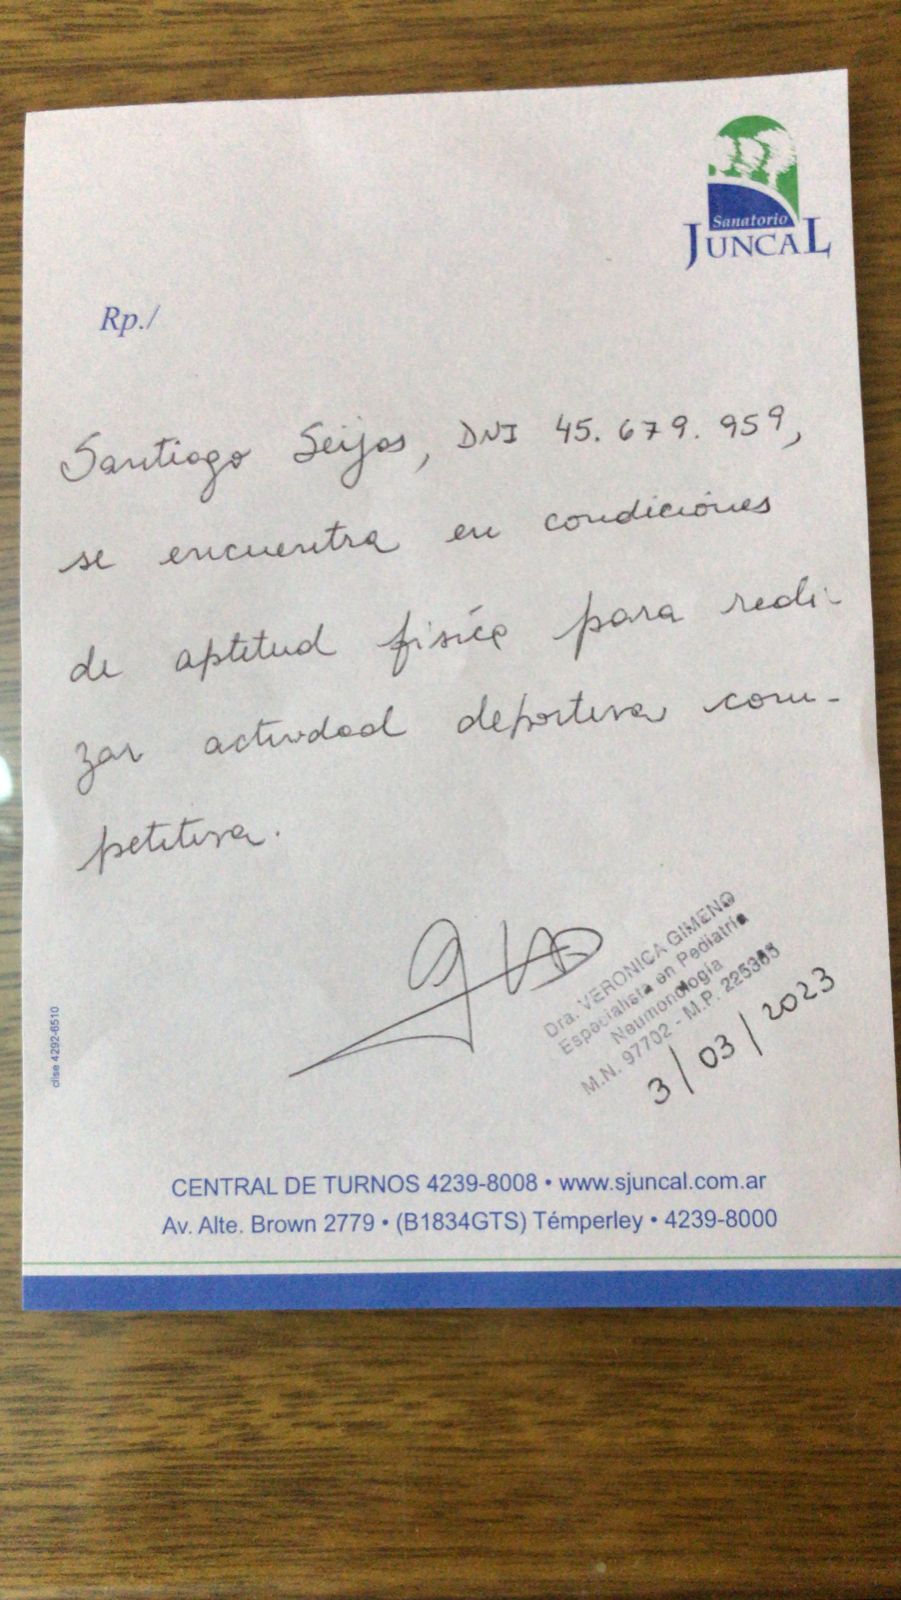 Sanatorio
JUNCAL
Rp./
Santiago Seijas, DNI 45.679.959,
se encuentra en condiciones
de aptitud física para reali-
zar actividad deportiva com-
petitiva.
Dra. VERONICA GIMENO
Especialista en Pediatría
Neumonología
M.N. 97702 - M.P. 225385
3/03/2023
clise 4292-6510
CENTRAL DE TURNOS 4239-8008 • www.sjuncal.com.ar
Av. Alte. Brown 2779 • (B1834GTS) Témperley • 4239-8000